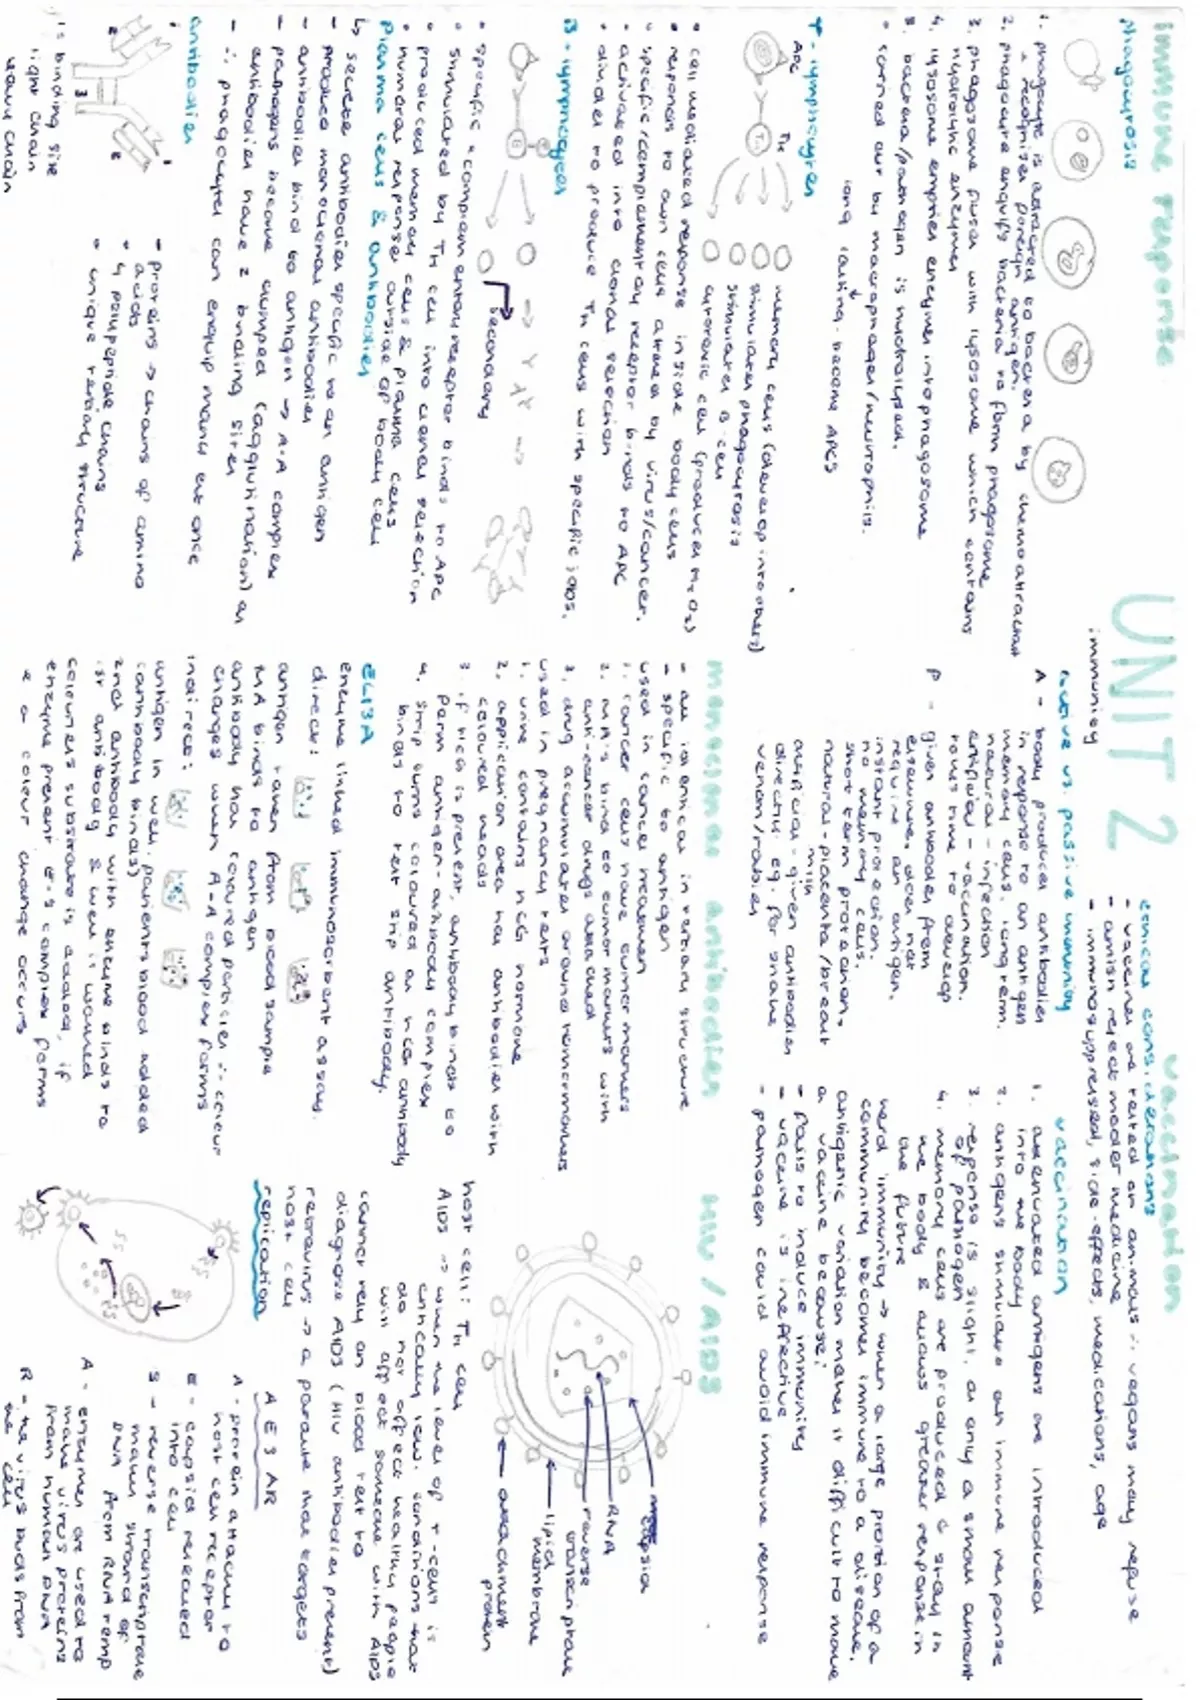 UNIT 2
immune response
phagocytosis
1. phagocyte is attracted to bacteria by chemoattractant
→ recognises foreign antigen.
2. phagocyte engulfs bacteria to form phagosome
3. phagosome fuses with lysosome which contains
hydrolytic enzymes
4. lysosome empties enzymes into phagosome
5. bacteria/pathogen is hydrolysed.
• carried out by macrophages/neutrophils.
long lasting - become APCs
T-lymphocytes
APC
TH
TH
memory cells (develop into others)
stimulates phagocytosis
stimulates B-cell
cytotoxic cell (produces H2O2)
• cell mediated response inside body cells
• responds to own cells altered by virus/cancer.
• specific/complementary receptor binds to APC
• activated into clonal selection
• divides to produce TH cells with specific jobs.
B-lymphocytes
B
secondary
• specific & complementary receptor binds to APC
• stimulated by TH cell into clonal selection
• produced memory cells & plasma cells
• humoral response outside of body cell
plasma cells & antibodies
↳ secrete antibodies specific to an antigen
- produce monoclonal antibodies
- antibodies bind to antigen → A-A complex
- pathogens become clumped (agglutination) as
antibodies have 2 binding sites
- ∴ phagocytes can engulf many at once
antibodies
1
1
2
2
3
1's binding site
light chain
heavy chain
- proteins → chains of amino
acids
• 4 polypeptide chains
• unique tertiary structure
immunity
active vs. passive immunity
A - body produces antibodies
in response to an antigen
memory cells. long term.
natural - infection
artificial - vaccination.
takes time to develop
P - given antibodies from
elsewhere, does not
require an antigen.
instant protection.
no memory cells.
short term protection.
natural - placenta/breast
milk
artificial - given antibodies
directly eg. for snake
venom/rabies
monoclonal antibodies
- all identical in tertiary structure
- specific to antigen
used in cancer treatment
1. cancer cells have tumor markers
2. MA's bind to tumor markers with
anti-cancer drugs attached
3. drug accumulates around
used in pregnancy tests
1. urine contains hCG hormone
2. application area has antibodies with
coloured beads
3. if hCG is present, antibody binds to
form antigen-antibody complex
4. strip turns coloured as hCG antibody
binds to test strip antibody.
ELISA
enzyme linked immunosorbent assay.
direct:
antigen taken from blood sample
MA binds to antigen
antibody has coloured particles ∴ colour
changes when A-A complex forms
indirect:
antigen in well, patients blood added
(antibody binds)
2nd antibody with enzyme binds to
1st antibody & well is washed
colourless substrate is added, if
enzyme present E-S complex forms
& a colour change occurs
vaccination
ethical considerations
- vaccines are tested on animals ∴ vegans may refuse
- amish reject modern medicine
- immunosuppressed, side-effects, medications, age
vaccination
1. attenuated antigens are introduced
into the body
2. antigens stimulate an immune response
3. response is slight, as only a small amount
of pathogen
4. memory cells are produced & stay in
the body & allows greater response in
the future
herd immunity → when a large portion of a
community become immune to a disease.
antigenic variation makes it difficult to make
a vaccine because:
- fails to induce immunity
- vaccine is ineffective
- pathogen could avoid immune response
HIV / AIDS
capsid
RNA
reverse
transcriptase
lipid
membrane
attachment
protein
host cell: TH cell
AIDS → when the level of T-cells is
critically low. conditions that
do not affect healthy people
will affect someone with AIDS
cannot rely on blood test to
diagnose AIDS (HIV antibodies present)
retrovirus → a parasite that targets
host cell
replication
AESAR
A - protein attaches to
host cell receptor
E - capsid released
into cell
S - reverse transcriptase
makes strand of
DNA from RNA temp
A - enzymes are used to
make virus proteins
from human DNA
R - the virus buds from
the cell